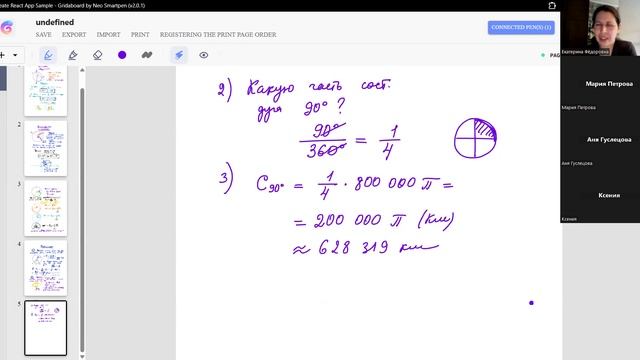 eate React App Sample - Gridaboard by Neo Smartpen (v2.0.1)
undefined
SAVE EXPORT IMPORT PRINT REGISTERING THE PRINT PAGE ORDER
CONNECTED PEN(S) (1)
PAG
2) Какую часть сост.
дуга 90° ?
90° / 360° = 1/4
3) C90° = 1/4 · 800 000 π =
= 200 000 π (км)
≈ 628 319 км
2
3
4
5
Екатерина Фёдоровна
Мария Петрова
Мария Петрова
Аня Гуслецова
Аня Гуслецова
Ксения
Ксения